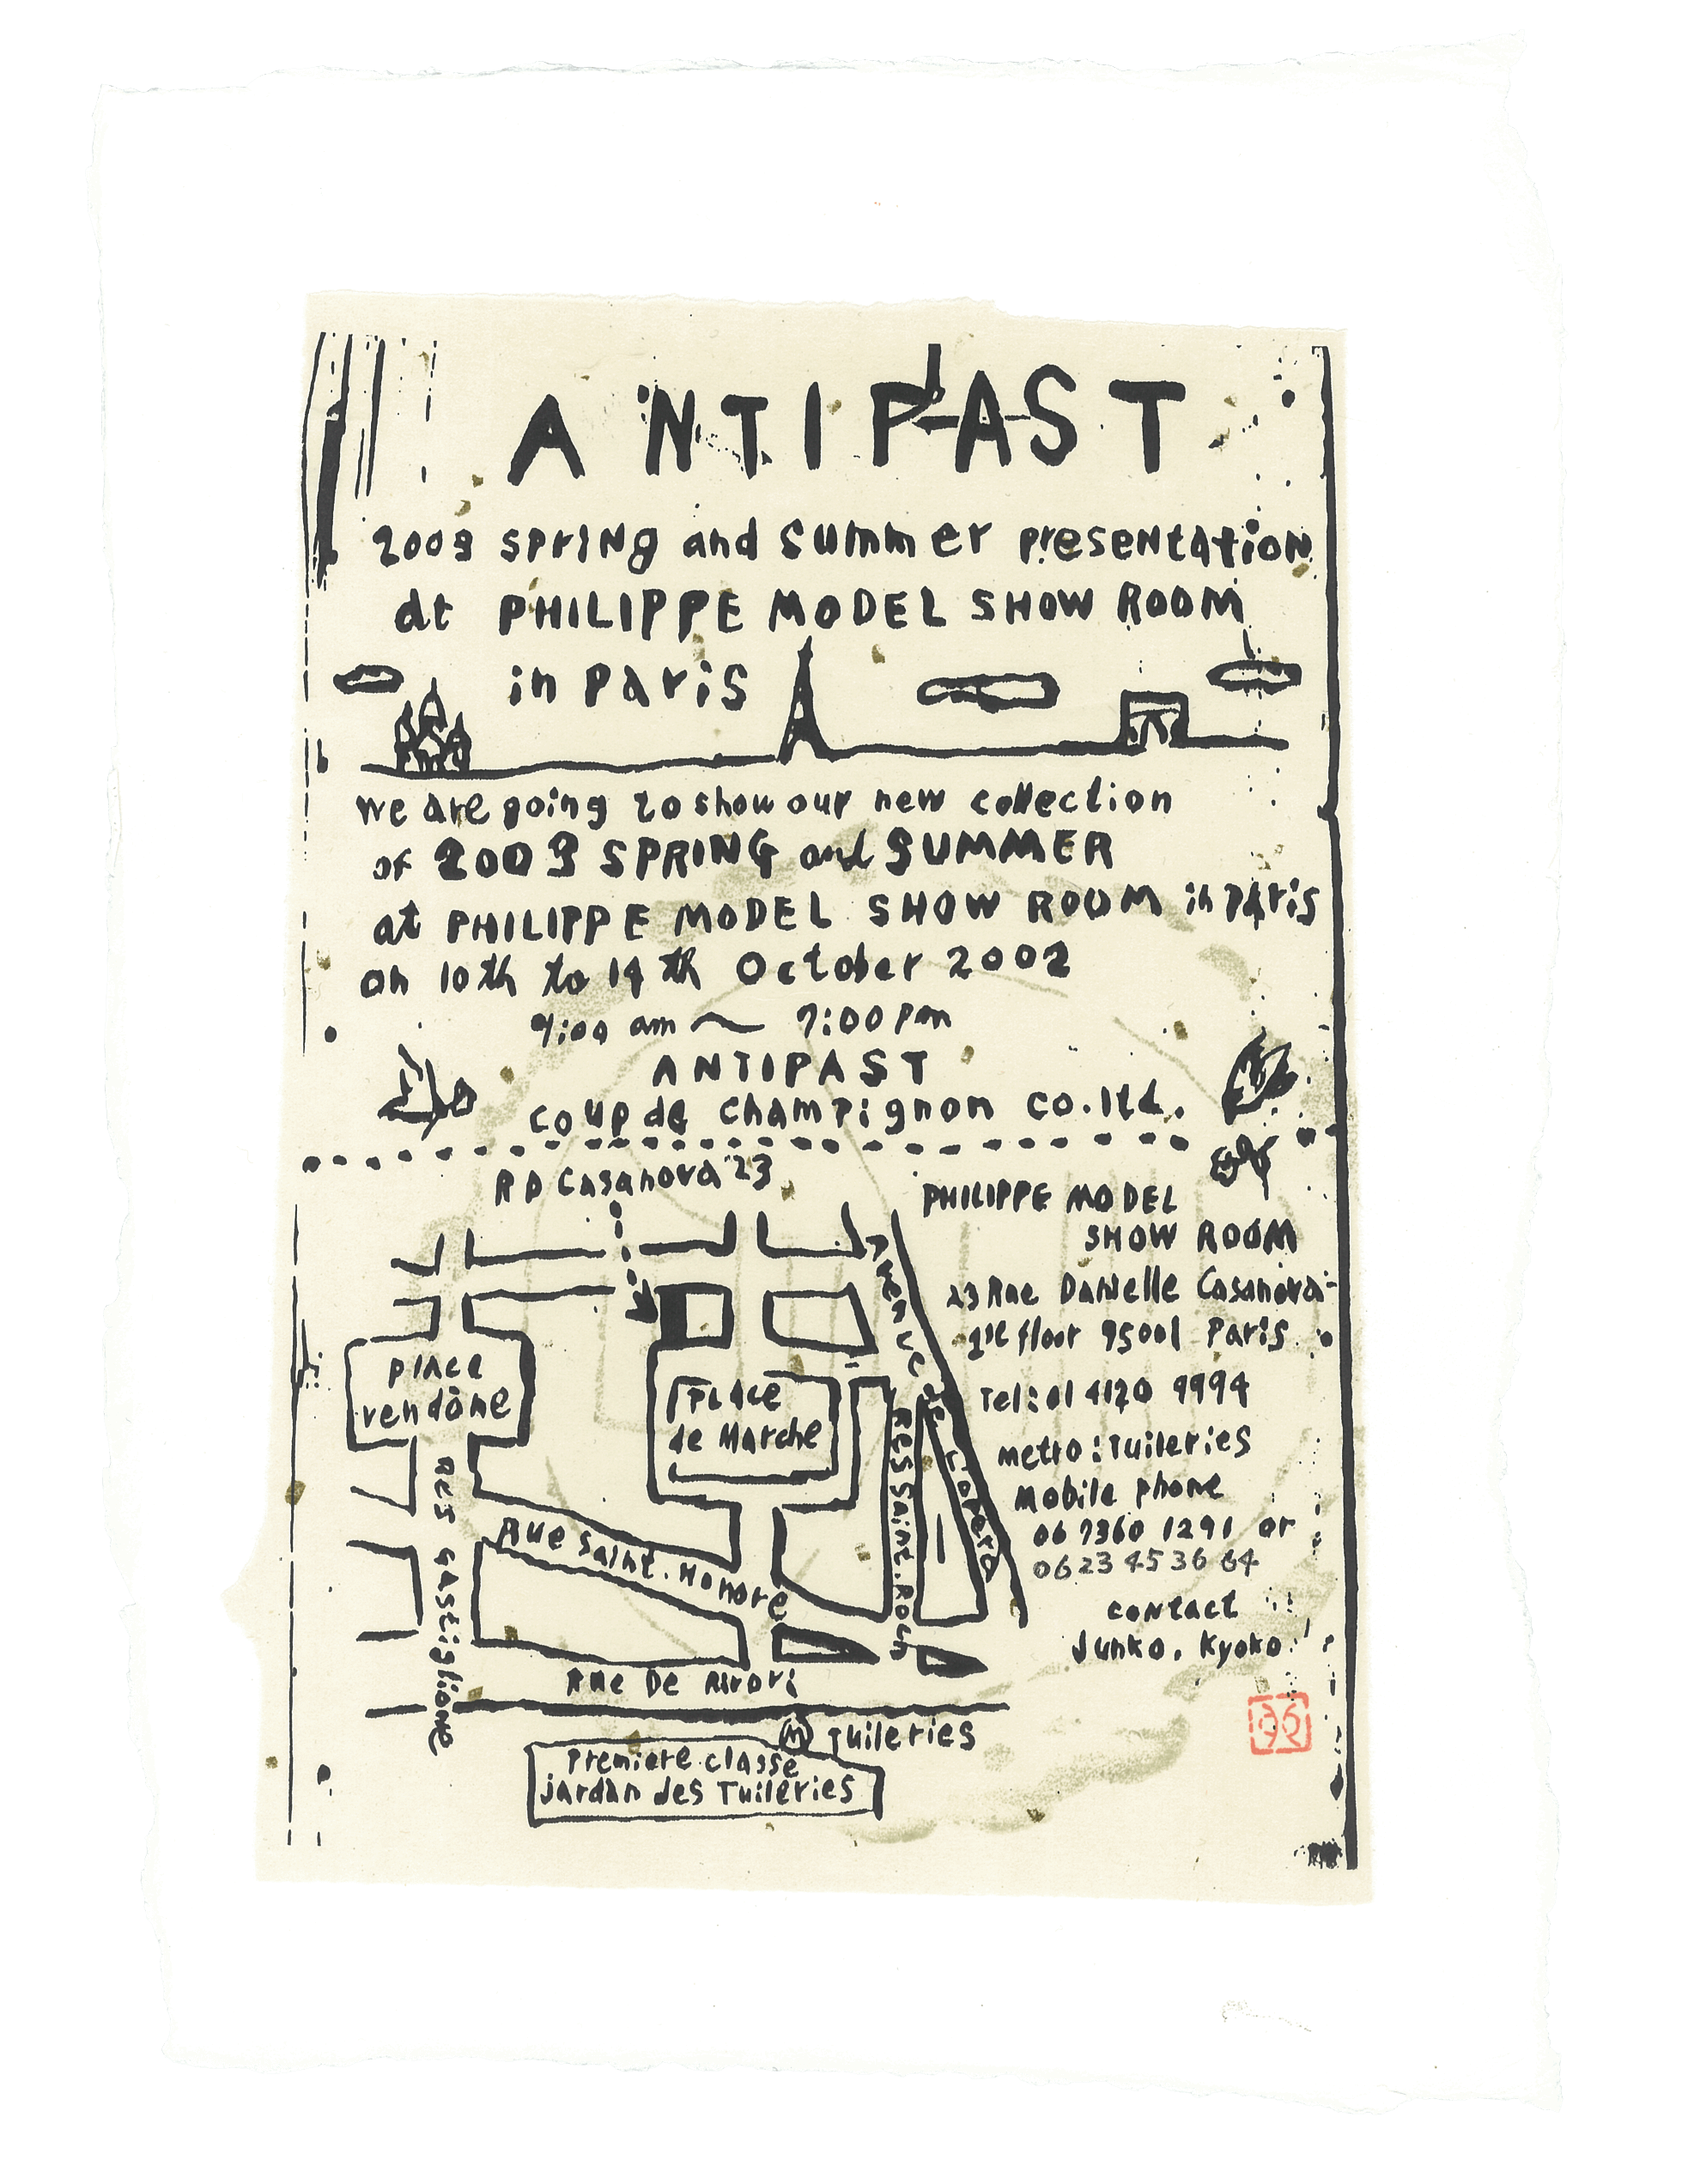 ANTIPAST
2003 spring and summer presentation
at PHILIPPE MODEL SHOW ROOM
in Paris
we are going to show our new collection
of 2003 SPRING and SUMMER
at PHILIPPE MODEL SHOW ROOM in Paris
on 10th to 14th October 2002
9:00 am ~ 7:00 pm
ANTIPAST
coup de champignon co.ltd.
R D Casanova 23
PHILIPPE MODEL
SHOW ROOM
23 Rue Danielle Casanova
floor 95001 Paris
Tel: 01 4120 9994
metro: Tuileries
Mobile phone
06 7360 1291 or
06 23 45 36 64
contact
Junko, Kyoko
Avenue de l'opera
place
vendôme
PLACE
de Marche
RES Saint. Roch
RES Castiglione
Rue Saint. Honore
Rue De Rivori
M Tuileries
Premiere classe
jardan des Tuileries